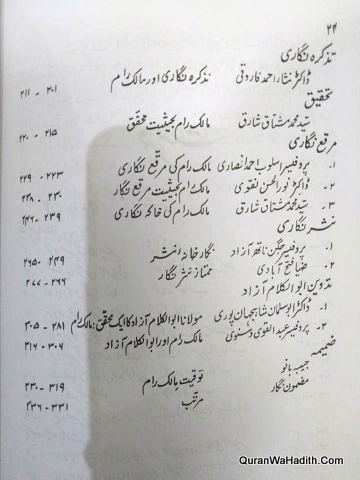 ۲۴
تذکرہ نگاری
ڈاکٹر نثار احمد فاروقی تذکرہ نگاری اور مالک رام ۲۰۱ - ۲۱۱
تحقیق
سید محمد مشتاق شارق مالک رام بحیثیت محقق ۲۱۵ - ۲۲۰
مرقع نگاری
۱. پروفیسر اسلوب احمد انصاری مالک رام کی مرقع نگاری ۲۲۳ - ۲۲۹
۲. ڈاکٹر نور الحسن نقوی مالک رام بحیثیت مرقع نگار ۲۳۰ - ۲۳۸
۳. سید محمد مشتاق شارق مالک رام کی خاکہ نگاری ۲۳۹ - ۲۴۶
نثر نگاری
۱. پروفیسر جگن ناتھ آزاد نگار خانۂ نثر ۲۴۹ - ۲۶۵
۲. ضیا فتح آبادی ممتاز نثر نگار ۲۶۶ - ۲۷۷
تدوین ابوالکلام آزاد
۱. ڈاکٹر ابوسلمان شاہجہاں پوری مولانا ابوالکلام آزاد کا ایک محقق: مالک رام ۲۸۱ - ۳۰۵
۲. پروفیسر عبدالقوی دسنوی مالک رام اور ابوالکلام آزاد ۳۰۶ - ۳۱۶
ضمیمہ
حبیبہ بانو توقیت مالک رام ۳۱۹ - ۳۳۰
مضمون نگار مرتب ۳۳۱ - ۳۳۶
QuranWaHadith.Com